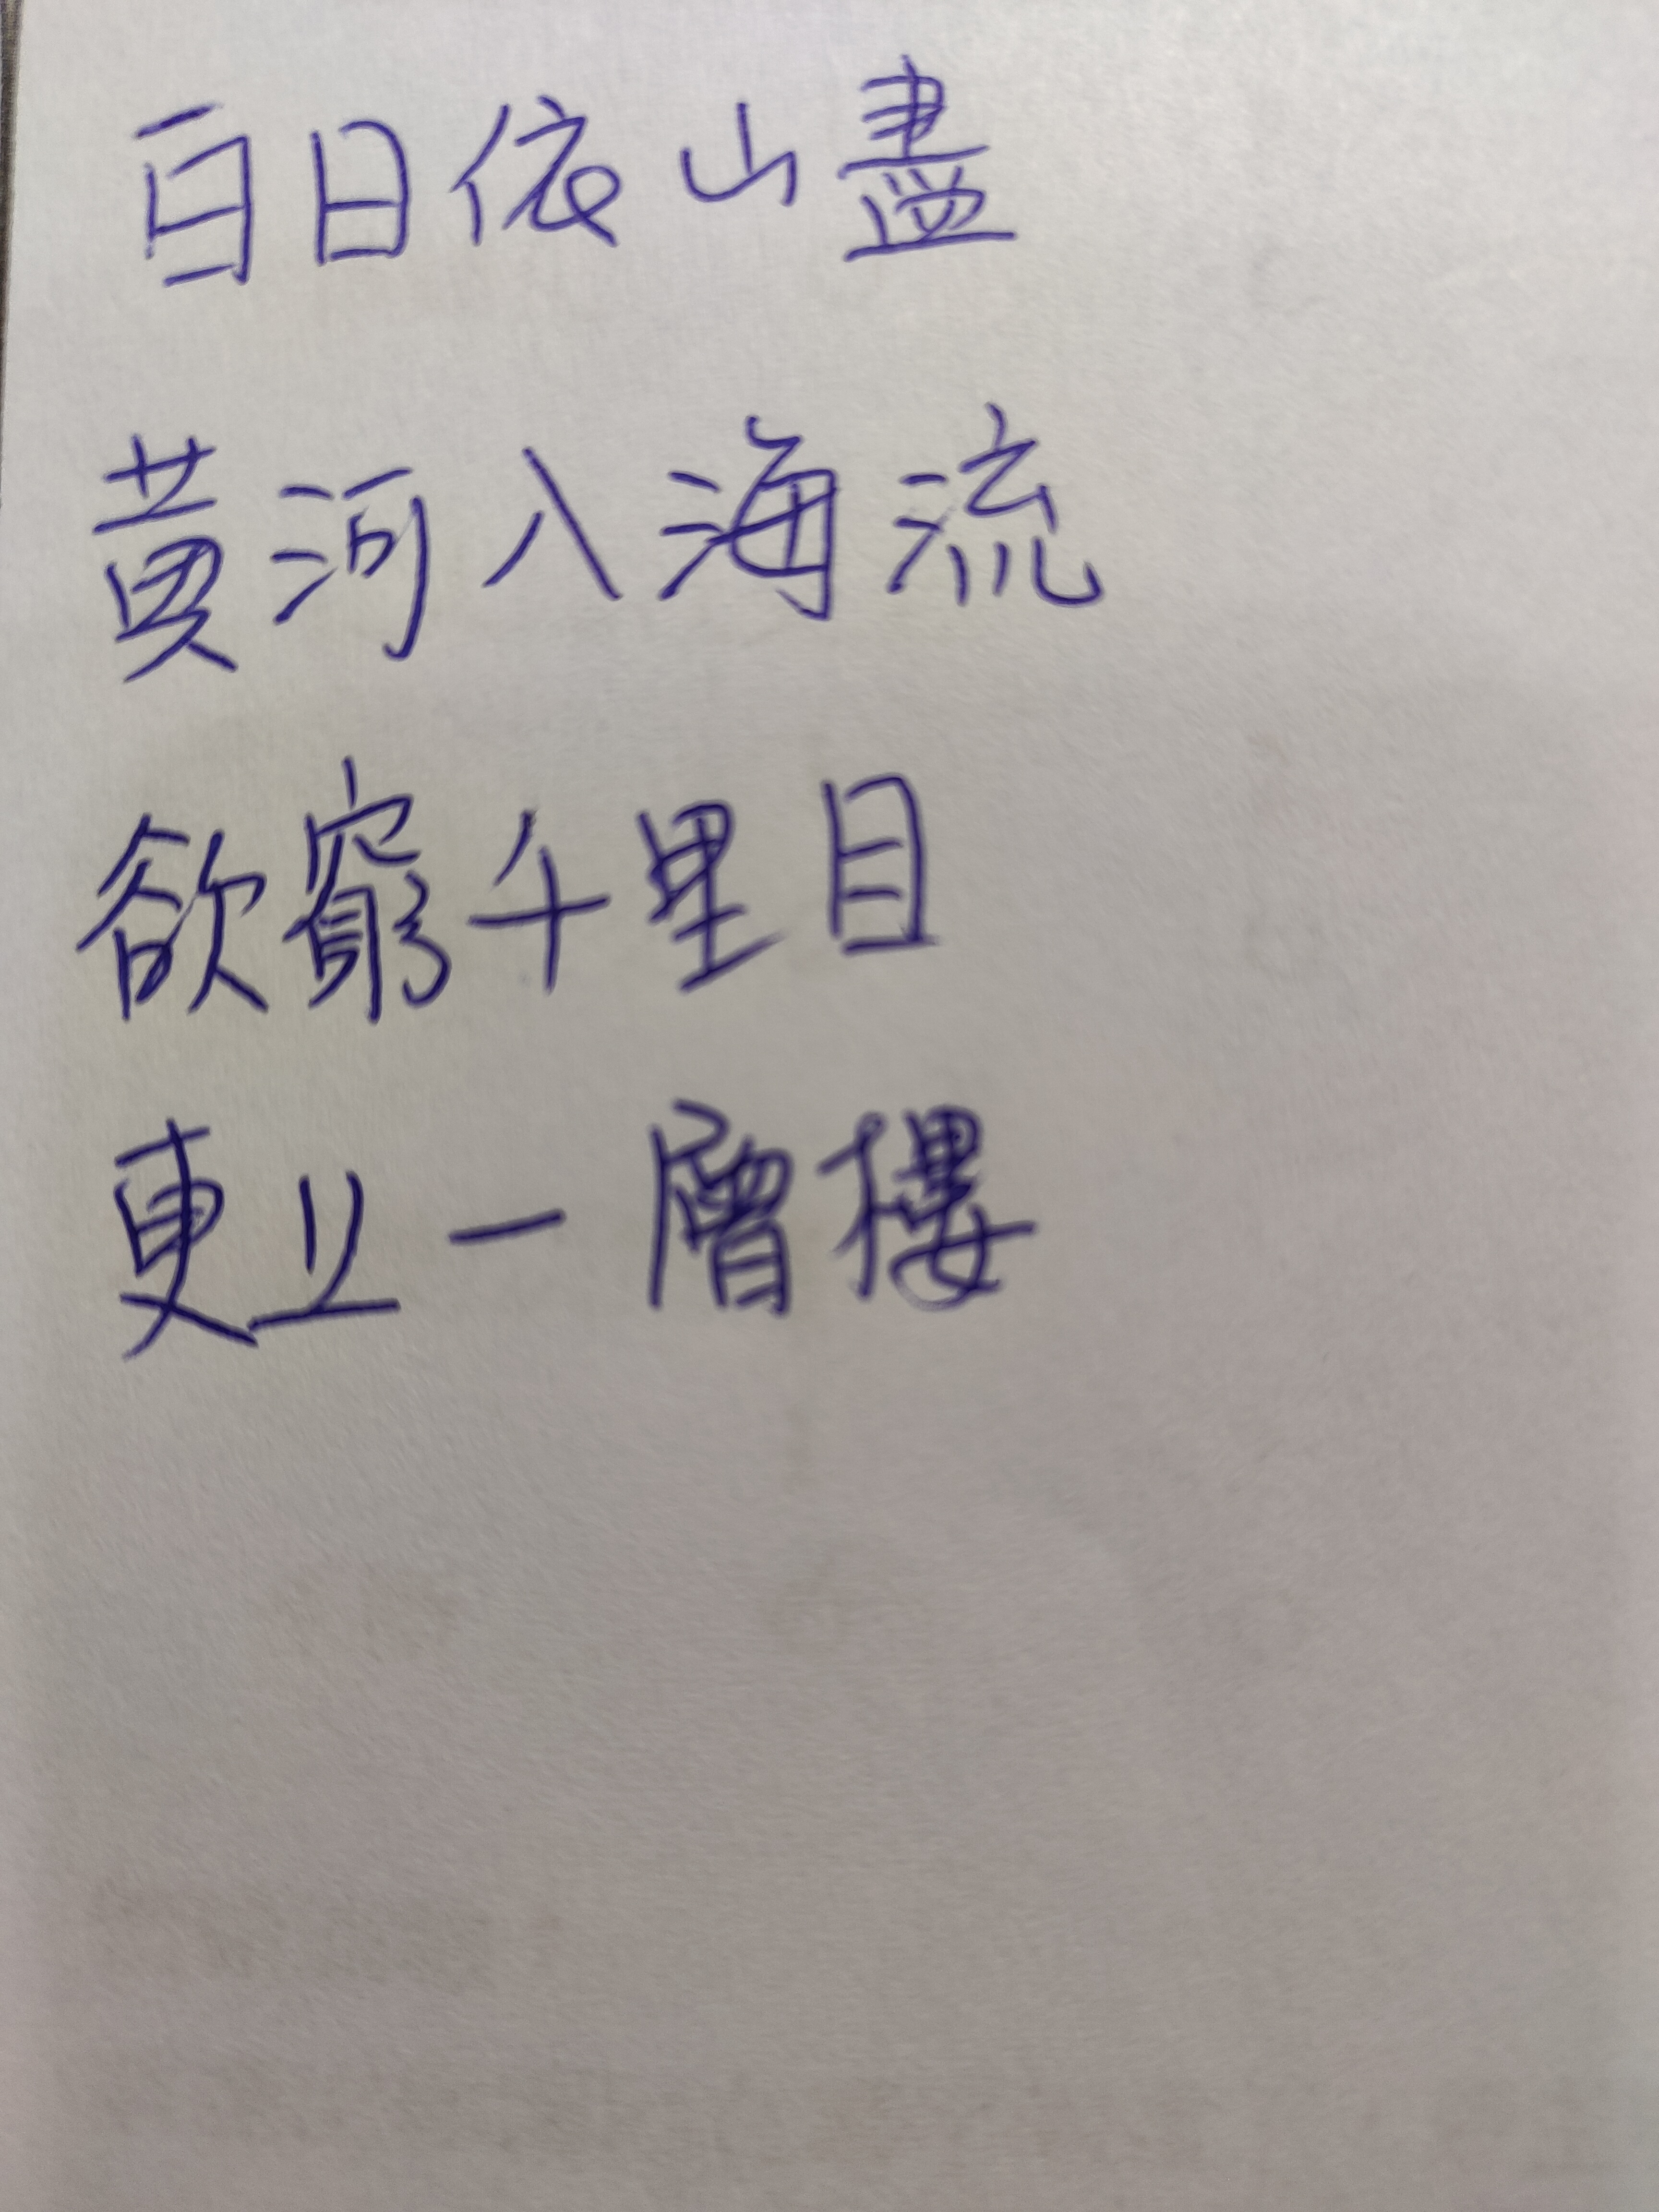 白日依山盡
黄河入海流
欲窮千里目
更一層樓